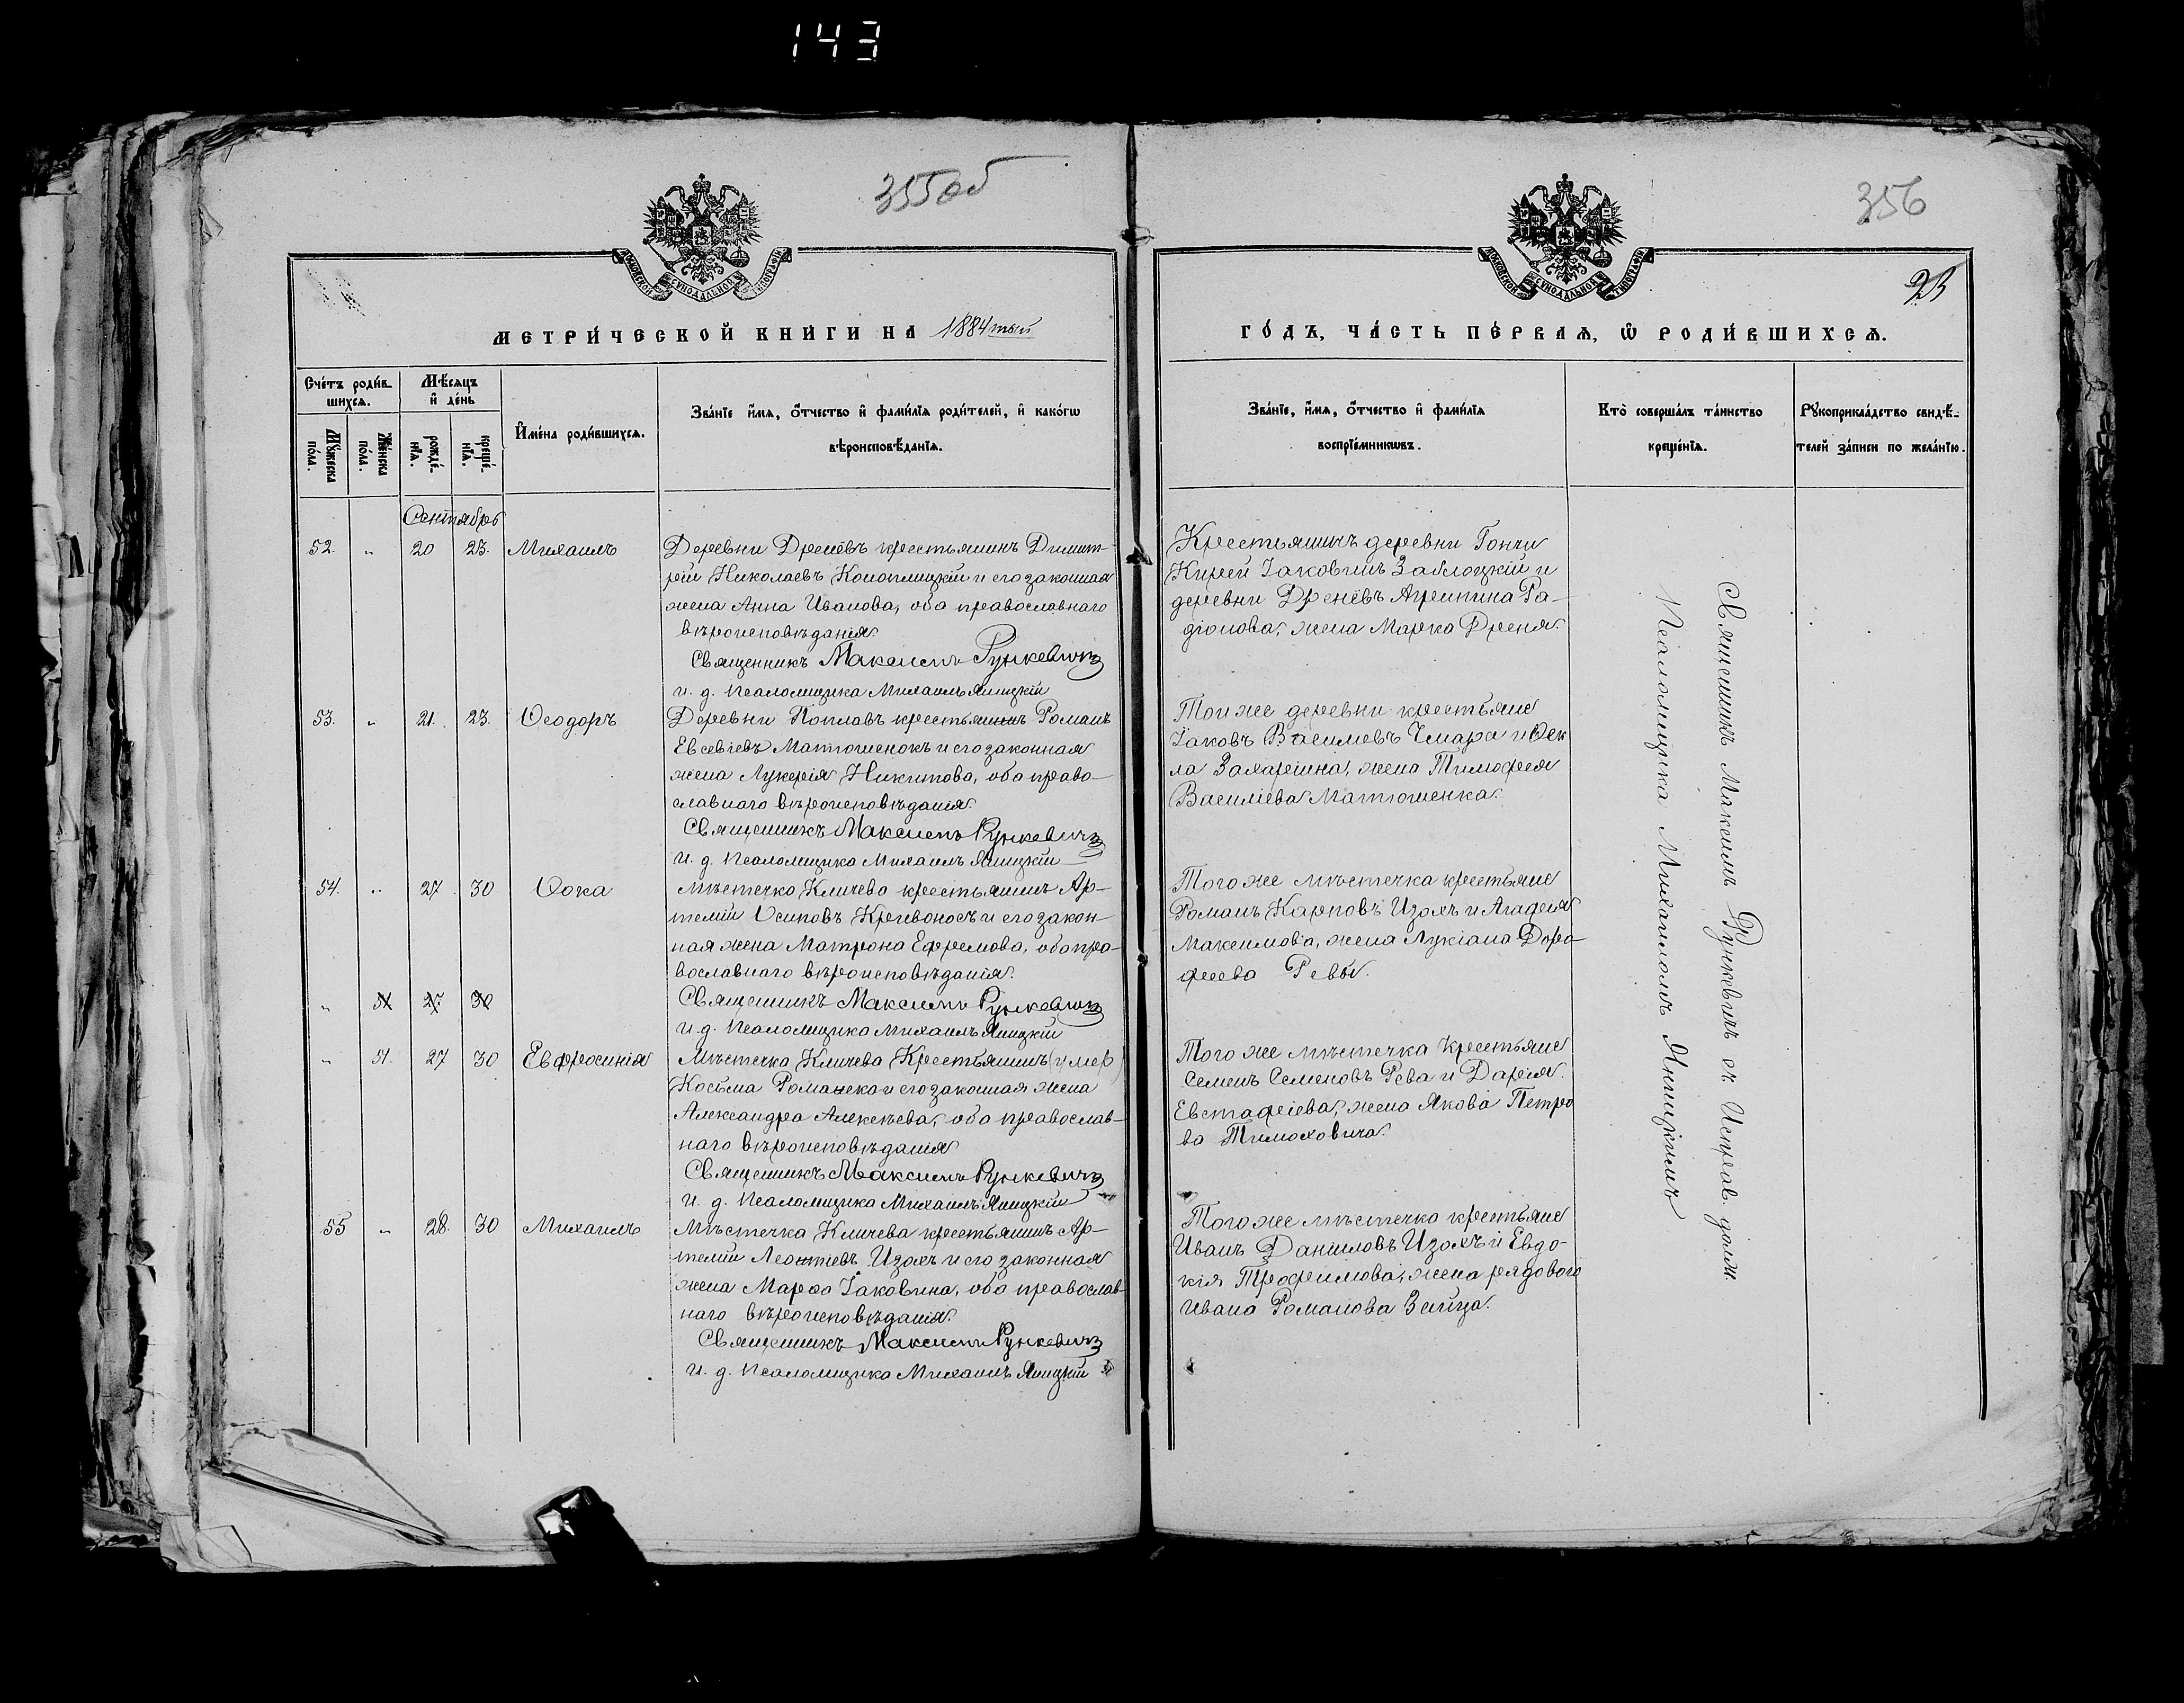 143
355 об
356
23
МОСКОВСКОЙ СУНОДАЛЬНОЙ ТИПОГРАФІИ
МОСКОВСКОЙ СУНОДАЛЬНОЙ ТИПОГРАФІИ
МЕТРИ́ЧЕСКОЙ КНИ́ГИ НА 1884 тый
ГО́ДЪ, ЧА́СТЬ ПЕ́РВАѦ, Ѡ҆ РОДИ́ВШИХСѦ.
Сче́тъ роди́в-
шихсѧ.
Мѣ́сѧцъ
и҆ де́нь
Мꙋ́жеска
по́ла.
Же́нска
по́ла.
рожде́-
нїѧ.
креще́-
нїѧ.
И҆мена̀ роди́вшихсѧ.
Зва́нїе и҆́мѧ, ѻ҆́тчество и҆ фами́лїѧ роди́телей, и҆ како́гѡ
вѣроисповѣ́данїѧ.
Зва́нїе, и҆́мѧ, ѻ҆́тчество и҆ фами́лїѧ
воспрїе́мникѡвъ.
Кто̀ соверша́лъ та́инство
креще́нїѧ.
Рꙋкоприкла́дство свидѣ́-
телей за́писи по жела́нїю.
Сентябрь
52. „ 20 23. Михаилъ
Деревни Дренёвъ крестьянинъ Димит-
рій Николаевъ Коноплицкій и его законная
жена Анна Иванова, оба православнаго
вѣроисповѣданія.
Священникъ Максимъ Рункевичъ
и. д. Псаломщика Михаилъ Яницкій
Крестьянинъ деревни Гончи
Кирей Іаковинъ Заблоцкій и
деревни Дренёвъ Агрипина Ра-
діонова, жена Марка Дреня.
53. „ 21. 23. Ѳеодоръ
Деревни Поплавъ крестьянинъ Романъ
Евсевіевъ Матюшенокъ и его законная
жена Лукерія Никитова, оба право-
славнаго вѣроисповѣданія.
Священникъ Максимъ Рункевичъ
И. д. Псаломщика Михаилъ Яницкій
Той же деревни крестьяне
Іаковъ Василіевъ Чмара и Ѳек
ла Захаріина, жена Тимофея
Василіева Матюшенка.
54. „ 27. 30 Ѳока
Мѣстечка Кличева крестьянинъ Ар-
темій Осиповъ Кривоносъ и его закон-
ная жена Матрона Ефремова, оба пра-
вославнаго вѣроисповѣданія.
Священникъ Максимъ Рункевичъ
И. д. Псаломщика Михаилъ Яницкій
Того же мѣстечка крестьяне
Романъ Карповъ Изохъ и Агафія
Максимова, жена Лукіана Доро-
феева Ревы.
„ 51 27. 30
„ 51. 27 30 Евфросинія
Мѣстечка Кличева Крестьянинъ (умер)
Косьма Романска и его законная жена
Александра Алексѣева, оба православ-
наго вѣроисповѣданія
Священникъ Максимъ Рункевичъ
И. д. Псаломщика Михаилъ Яницкій
Того же мѣстечка крестьяне
Семенъ Семеновъ Рева и Дарія
Евстафіева, жена Якова Петро
ва Тимоховича.
55 „ 28. 30 Михаилъ
Мѣстечка Кличева крестьянинъ Ар-
темій Леонтіевъ Изохъ и его законная
жена Марѳа Іаковина, оба православ-
наго вѣроисповѣданія.
Священникъ Максимъ Рункевичъ
И. д. Псаломщика Михаилъ Яницкій
Того же мѣстечка крестьяне
Иванъ Даниловъ Изохъ и Евдо-
кія Трофимова, жена рядового
Ивана Романова Зайца.
Священникъ Максимъ Рункевичъ съ Исправ. долж.
Псаломщика Михаиломъ Яницкимъ